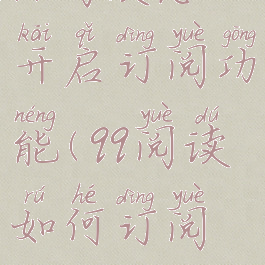 kāi qǐ dìng yuè gōng
开启订阅功
néng yuè dú
能(99阅读
rú hé dìng yuè
如何订阅